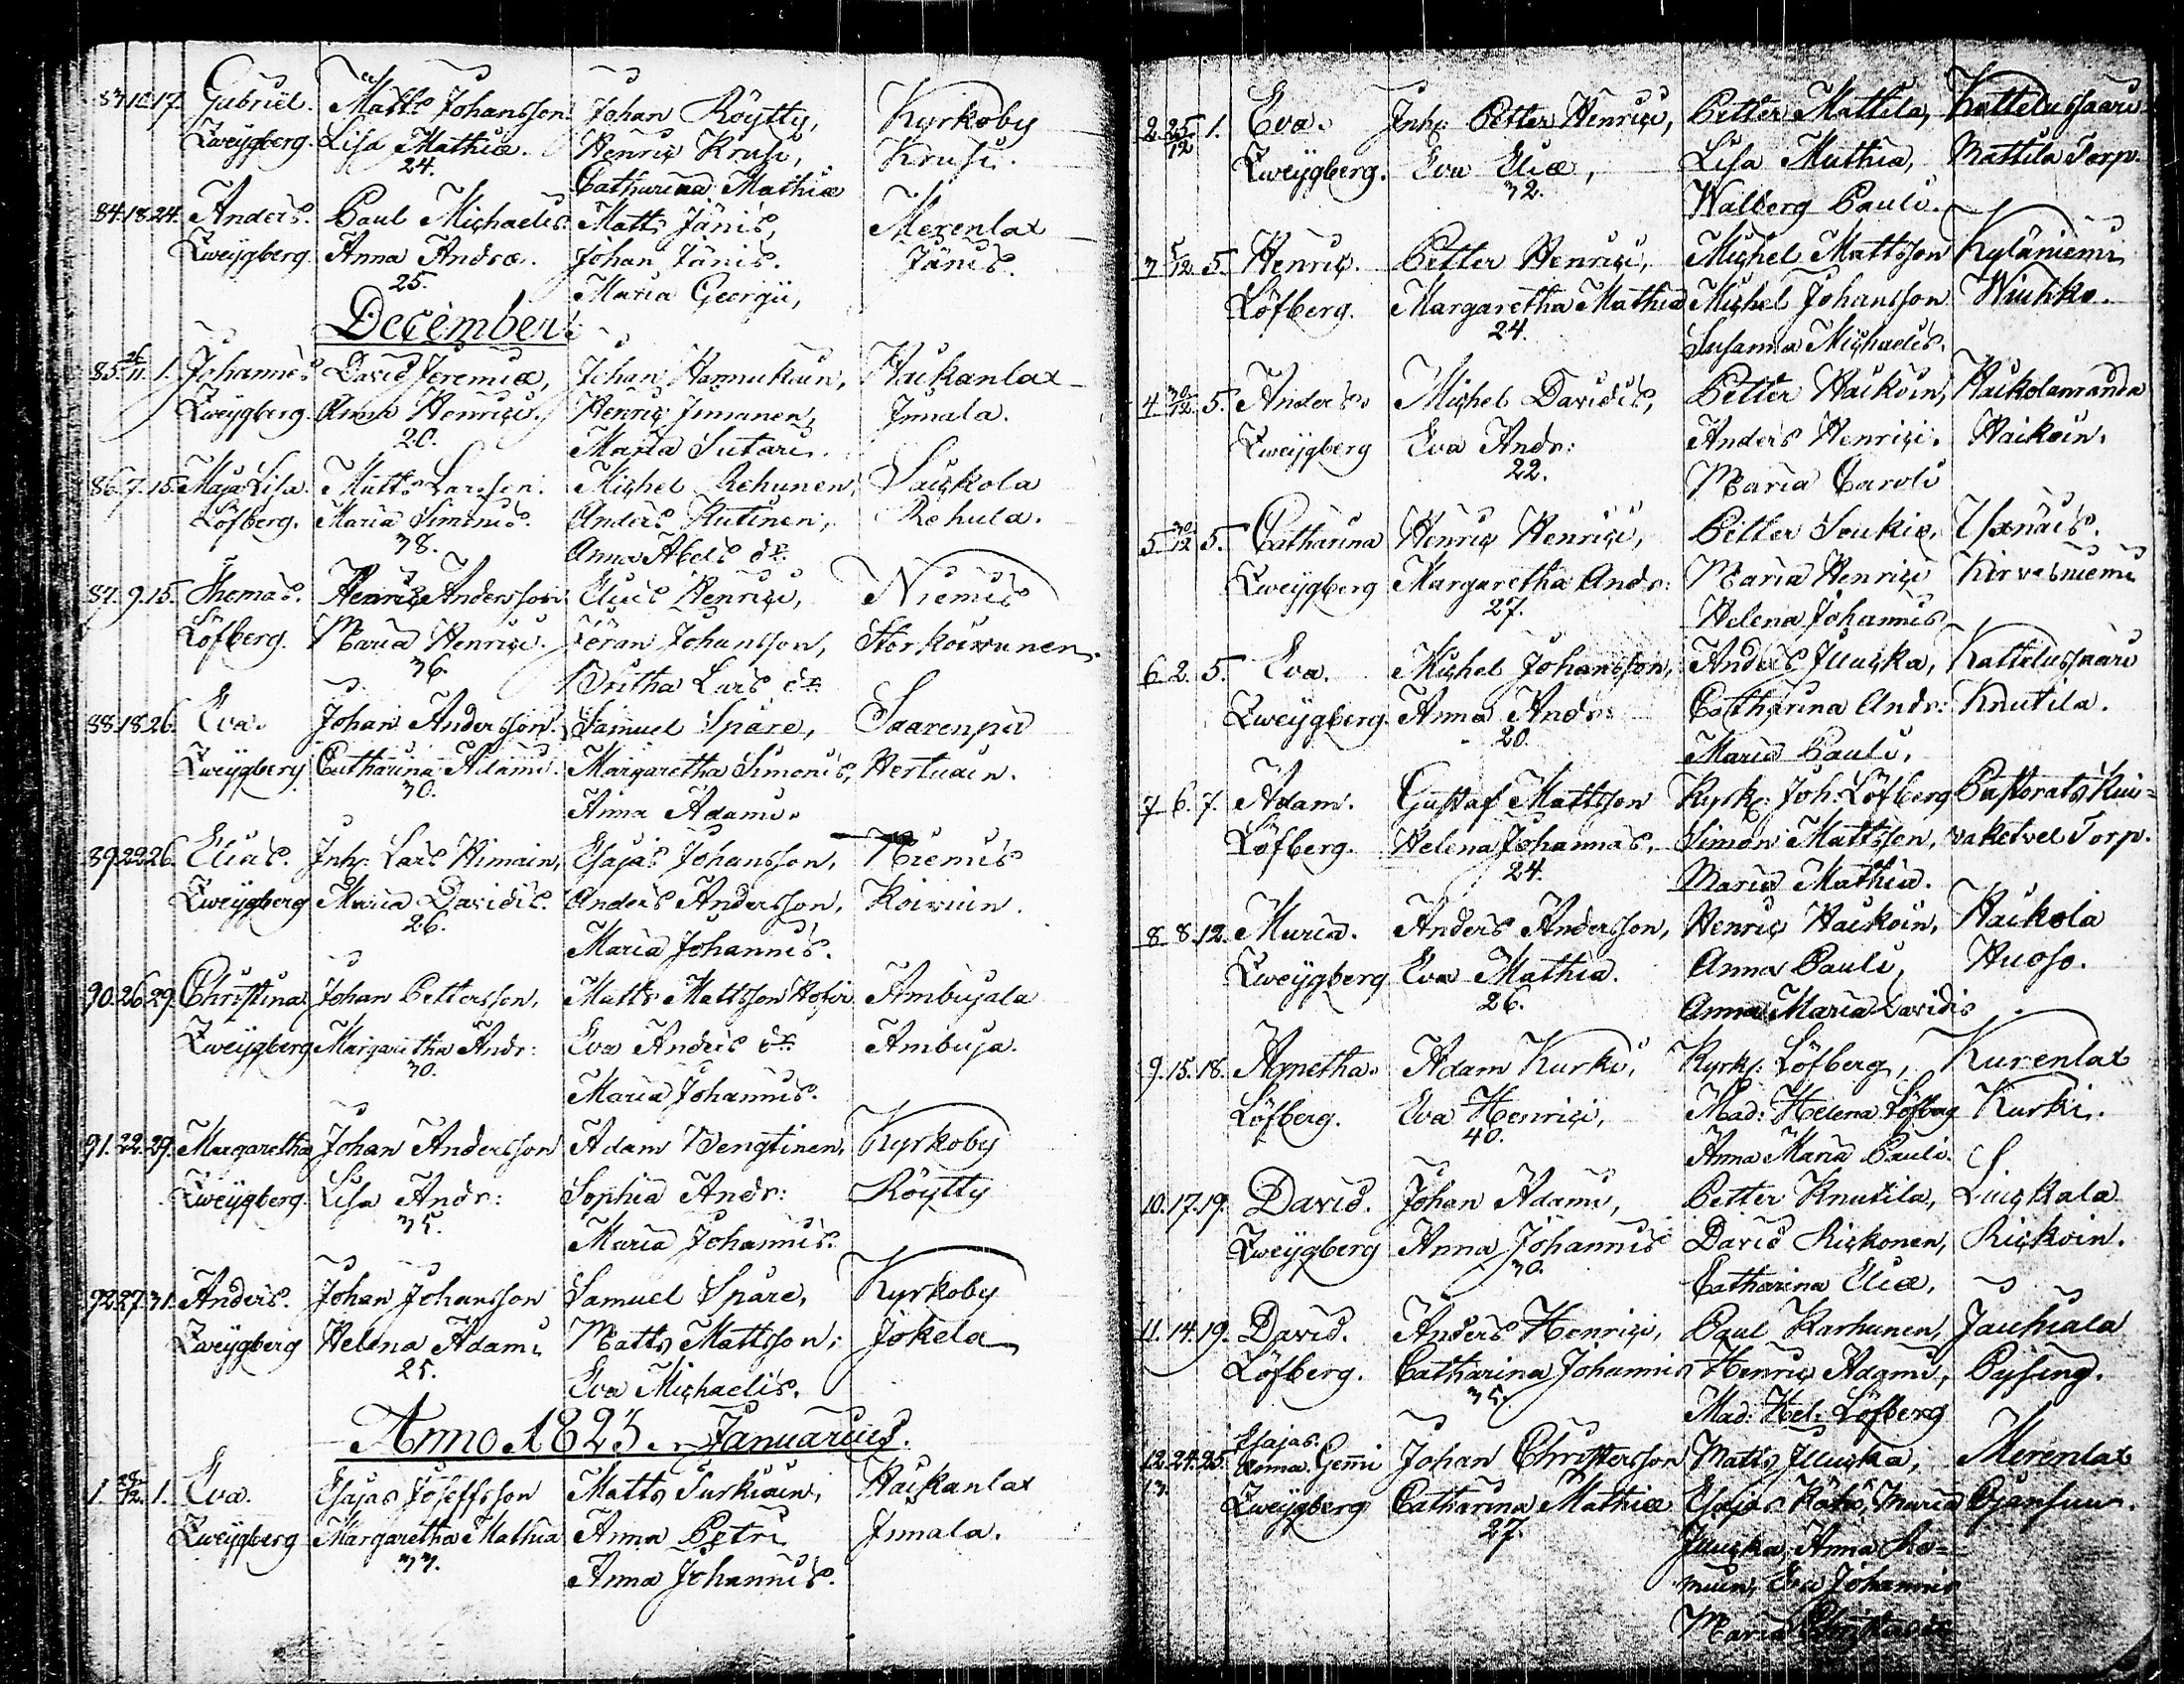 83. 10. 17. Gabriel. Matts Johansson Johan Röytty, Kyrkoby
Zweygberg. Lisa Mathiæ. Henric Krusi, Krusi.
24. Catharina Mathiæ
84. 18. 24. Anders. Paul Michaelis Matts Jänis, Merenlax
Zweygberg. Anna Andræ. Johan Jänis. Jänis.
25. Maria Georgii,
December.
85. 26/11. 1. Johannes David Jeremiæ, Johan Hannukain, Haikanlax
Zweygberg. Anna Henrici. Henric Immanen, Immala.
20. Maria Sutari.
86. 7. 15. Maja Lisa. Matts Larsson. Michel Rehunen, Sackola
Löfberg. Maria Simonis. Anders Kutinen, Rehula.
38. Anna Abels dr.
87. 9. 15. Thomas. Henric Andersson Elias Henrici, Niemis
Löfberg. Maria Henrici. Jöran Johansson, Storkoivunen.
36. Britha Lars dr.
88. 18. 26. Eva. Johan Andersson. Samuel Spåre, Saarenpä
Zweygberg Catharina Adami. Margaretha Simonis, Hertuain.
30. Anna Adami.
89. 22. 26. Elias. Inh: Lars Himain, Esajas Johansson, Niemis
Zweygberg Maria Davidis. Anders Andersson, Koivuin.
26. Maria Johannis.
90. 26. 29. Christina Johan Pettersson, Matts Mattsson Ambujala
Zweygberg Margaretha Andr: Eva Anders dr. Ambuja.
30. Maria Johannis.
91. 22. 29. Margaretha Johan Andersson Adam Bengtinen, Kyrkoby
Zweygberg. Lisa Andr: Sophia Andr: Röytty
35. Maria Johannis.
92. 27. 31. Anders. Johan Johansson Samuel Spåre, Kyrkoby
Zweygberg Helena Adami Matts Mattsson, Jokela
25. Eva Michaelis.
Anno 1823. Januarius.
1. 28/12. 1. Eva. Esajas Joseffsson Matts Surkiain, Haikanlax
Zweygberg Margaretha Mathiæ Anna Petri Immala.
33. Anna Johannis.
2. 25/12 1. Eva. Inh: Petter Henrici, Petter Mattila, Kattelussaari
Zweygberg. Eva Eliæ, Lisa Mathiæ, Mattila Torp.
32. Walberg Pauli.
3 5/12 5. Henric. Petter Henrici, Michel Mattsson Kyläniemi
Löfberg. Margaretha Mathiæ Michel Johansson Wiuhko.
24. Susanna Michaelis.
4 30/12. 5. Anders. Michel Davidis, Petter Haikoin, Haikolanranda
Zweygberg Eva Andr: Anders Henrici. Haikoin.
22. Maria Caroli
5 30/12 5. Catharina Henric Henrici, Petter Soukia,
Zweygberg Margaretha Andr: Maria Henrici Kirvesniemi
27. Helena Johannis
6 2. 5. Eva. Michel Johansson, Anders Illuska, Kattelussaari
Zweygberg. Anna Andr: Catharina Andr: Knutila.
20. Maria Pauli,
7. 6. 7. Adam. Gustaf Mattsson Kyrk: Joh: Löfberg Pastorats Kui=
Löfberg. Helena Johannis, Simon Mattsson, vaketvel Torp.
24. Maria Mathiæ.
8 8. 12. Maria. Anders Andersson, Henric Haikoin, Haikola
Zweygberg Eva Mathiæ. Anna Pauli, Huoso.
26. Anna Maria Davidis
9. 15. 18. Agnetha. Adam Kurki, Kyrk: Löfberg, Kurenlax
Löfberg. Eva Henrici, Mad: Helena Löfberg Kurki.
40. Anna Maria Pauli.
10. 17. 19. David. Johan Adami, Petter Knutila, Luickala
Zweygberg Anna Johannis David Rickonen, Rickoin.
30. Catharina Eliæ,
11. 14. 19. David. Anders Henrici, Paul Karhunen, Jauhiala
Löfberg. Catharina Johannis Henric Adami, Pysing.
35. Mad: Hel: Löfberg
12. 24. 25. Esajas. Anna. Gemi Johan Christersson Matts Illuska, Merenlax
13. Zweygberg Catharina Mathiæ Esajas Maria
27. Illuska, Anna Ro=
muin, Eva Johannis
Maria